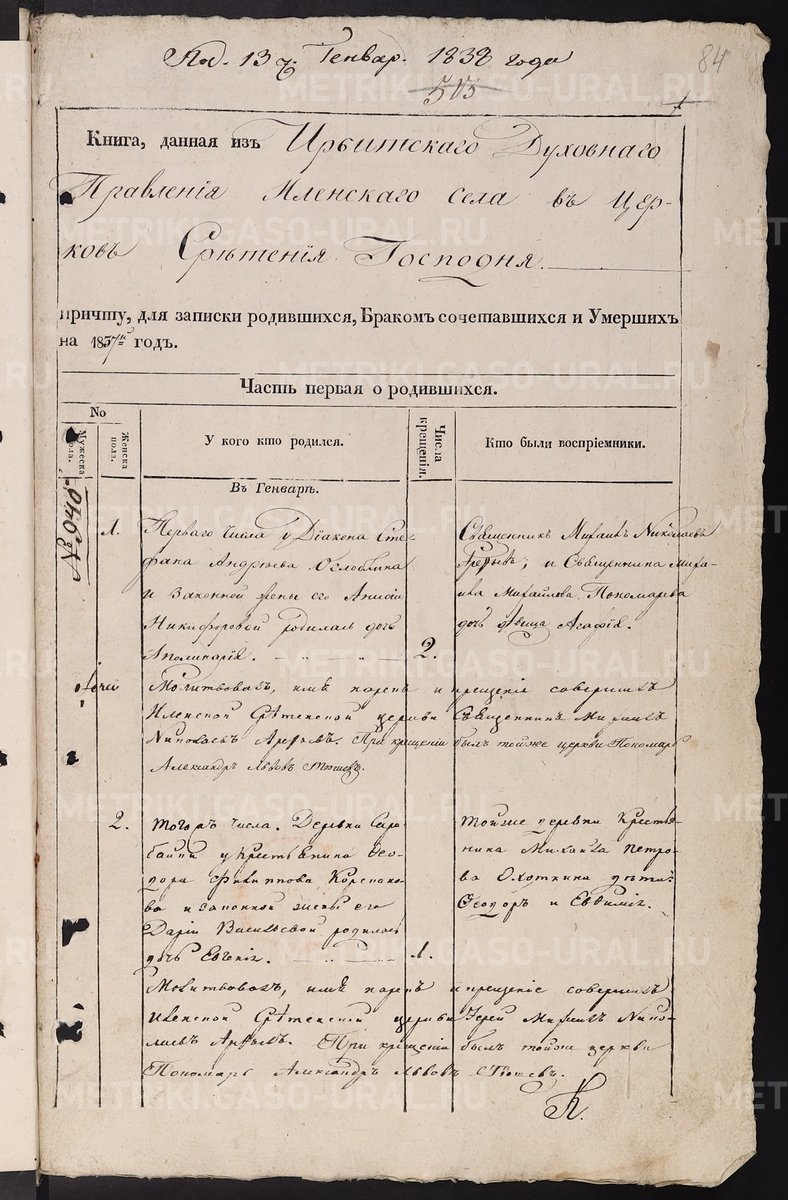 Под. 13 ч. Генвар. 1838 года
84
513
Книга, данная изъ Ирбитскаго Духовнаго
Правленія Иленскаго села въ Цер-
ковь Срѣтенія Господня.
причту, для записки родившихся, Бракомъ сочетавшихся и Умершихъ
на 1837й годъ.
Часть первая о родившихся.
No
Мужеска пола.
Женска пола.
У кого кто родился.
Числа крещенія.
Кто были воспріемники.
Въ Генварѣ.
1.
Перваго числа у Діакона Сте-
фана Андреева Оглоблина
и законной жены его Анисіи
Никифоровой родилась дочь
Аполинарія.
2.
Священникъ Михаилъ Николаевъ
и Священника Миха-
ила Михайлова Пономарева
дочь дѣвица Агафія.
Молитвовалъ, имя нарекъ и крещеніе совершилъ
Иленской Срѣтенской церкви Священникъ Михаилъ
Николаевъ При крещеніи былъ тойже церкви Пономарь
Александръ Львовъ
2.
Тогожъ числа. Деревни
у крестьянина Ѳео-
дора Филиппова
и законной жены его
Даріи Васильевой родилась
дочь Евгенія.
1.
Тойже деревни Кресть-
янина Михаила Петро-
ва Охоткина дѣти:
Ѳеодоръ и Евѳимія.
Молитвовалъ, имя нарекъ и крещеніе совершилъ
Иленской Срѣтенской церкви Іерей Михаилъ Нико-
лаевъ При крещеніи былъ тойже церкви
Пономарь Александръ Львовъ